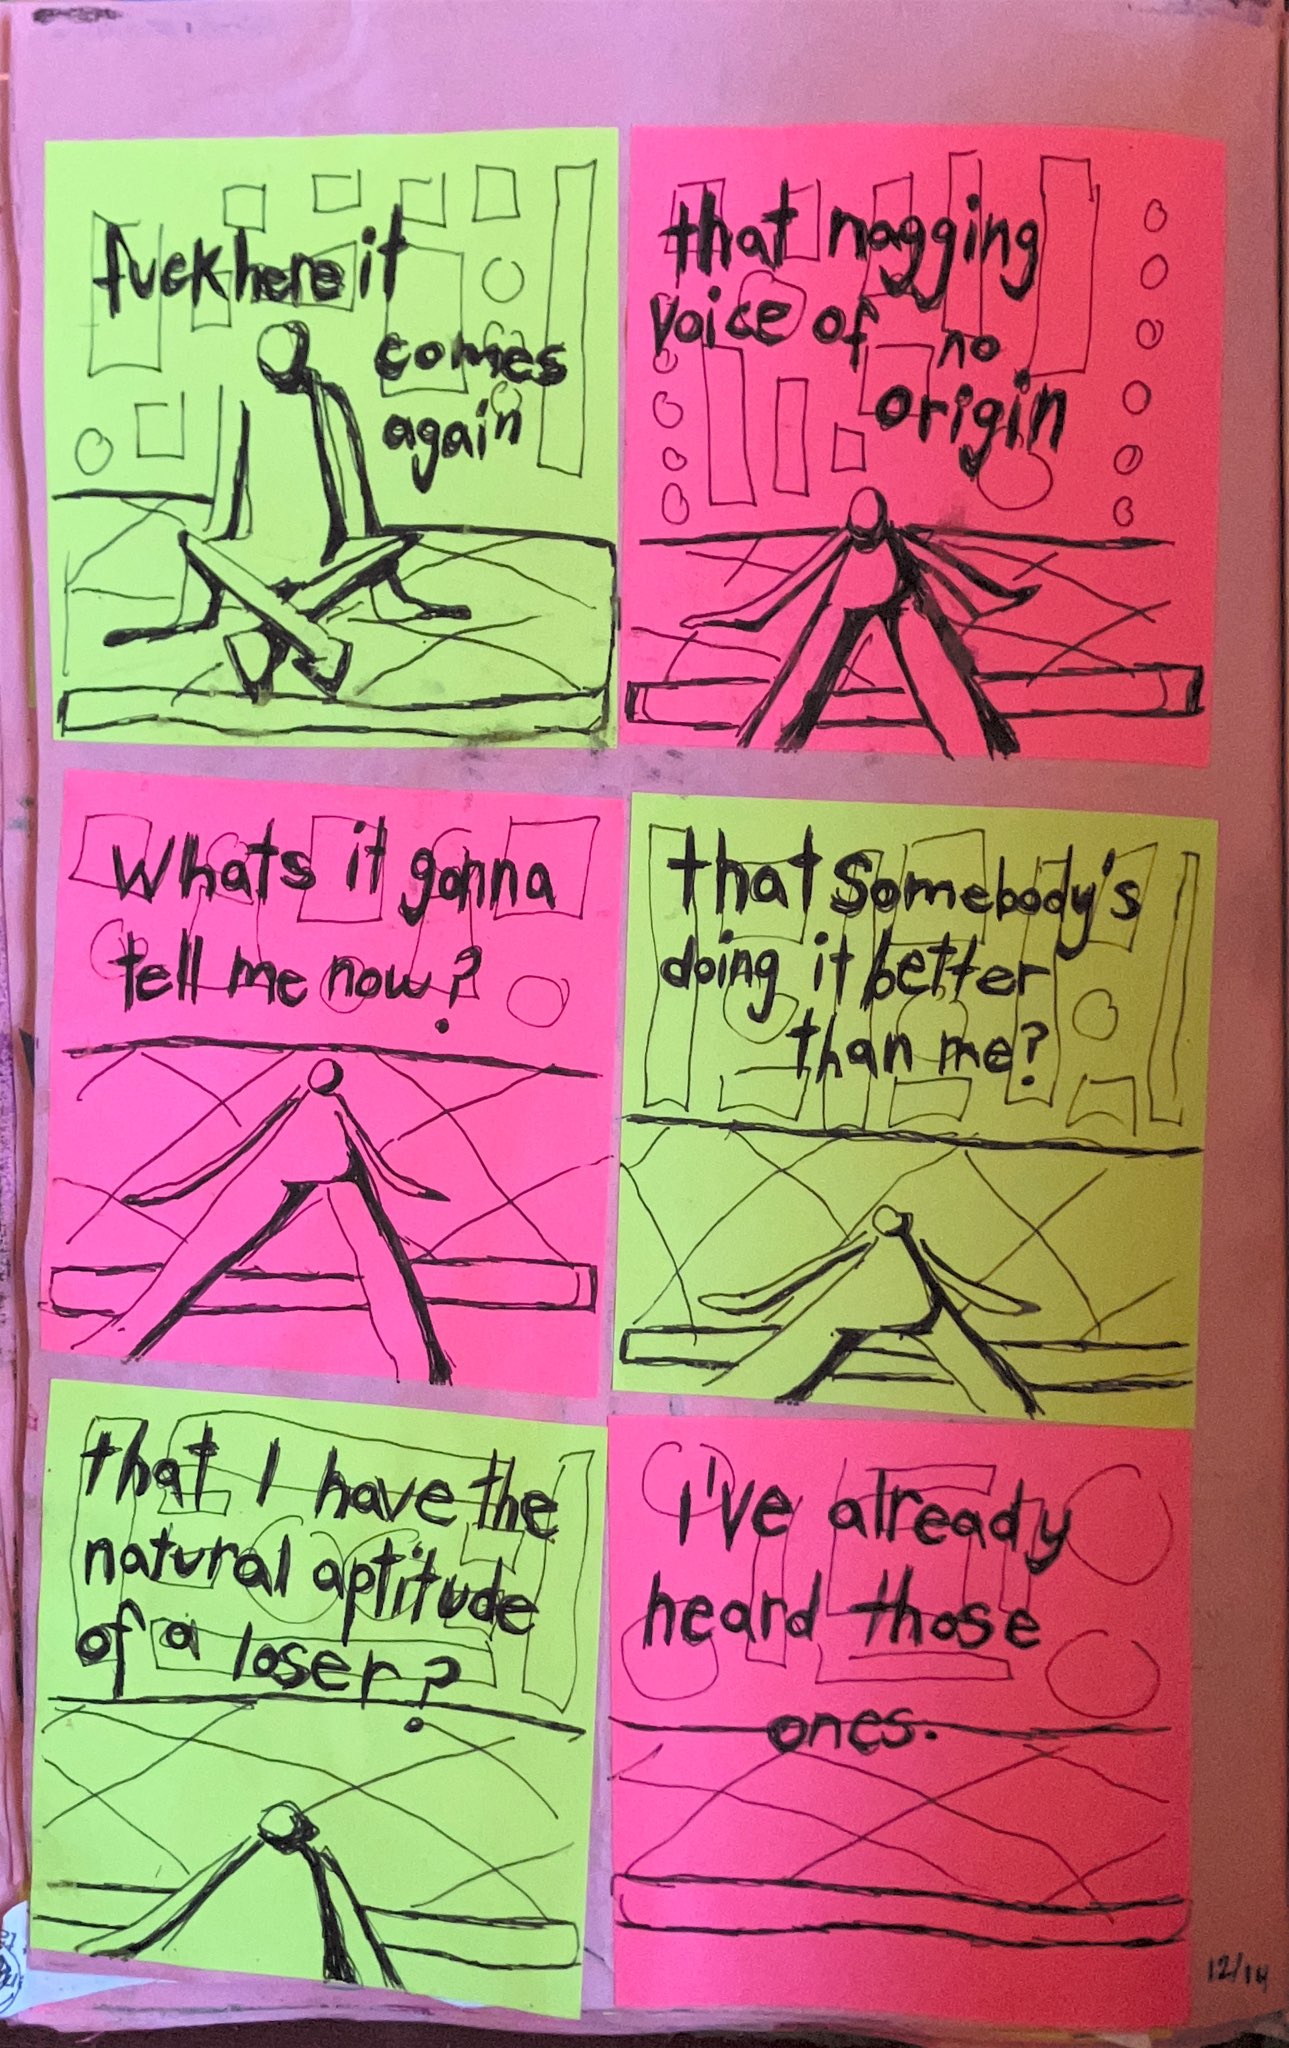 fuck here it
comes
again
that nagging
voice of no
origin
Whats it gonna
tell me now?
that somebody's
doing it better
than me?
that I have the
natural aptitude
of a loser?
i've already
heard those
ones.
12/14